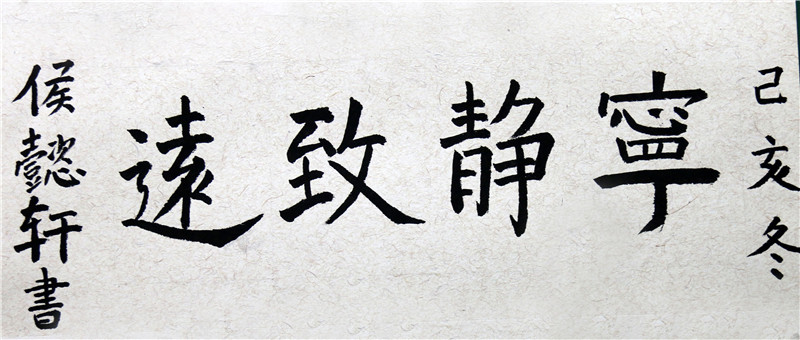 己亥冬
寧静致遠
侯懿轩書